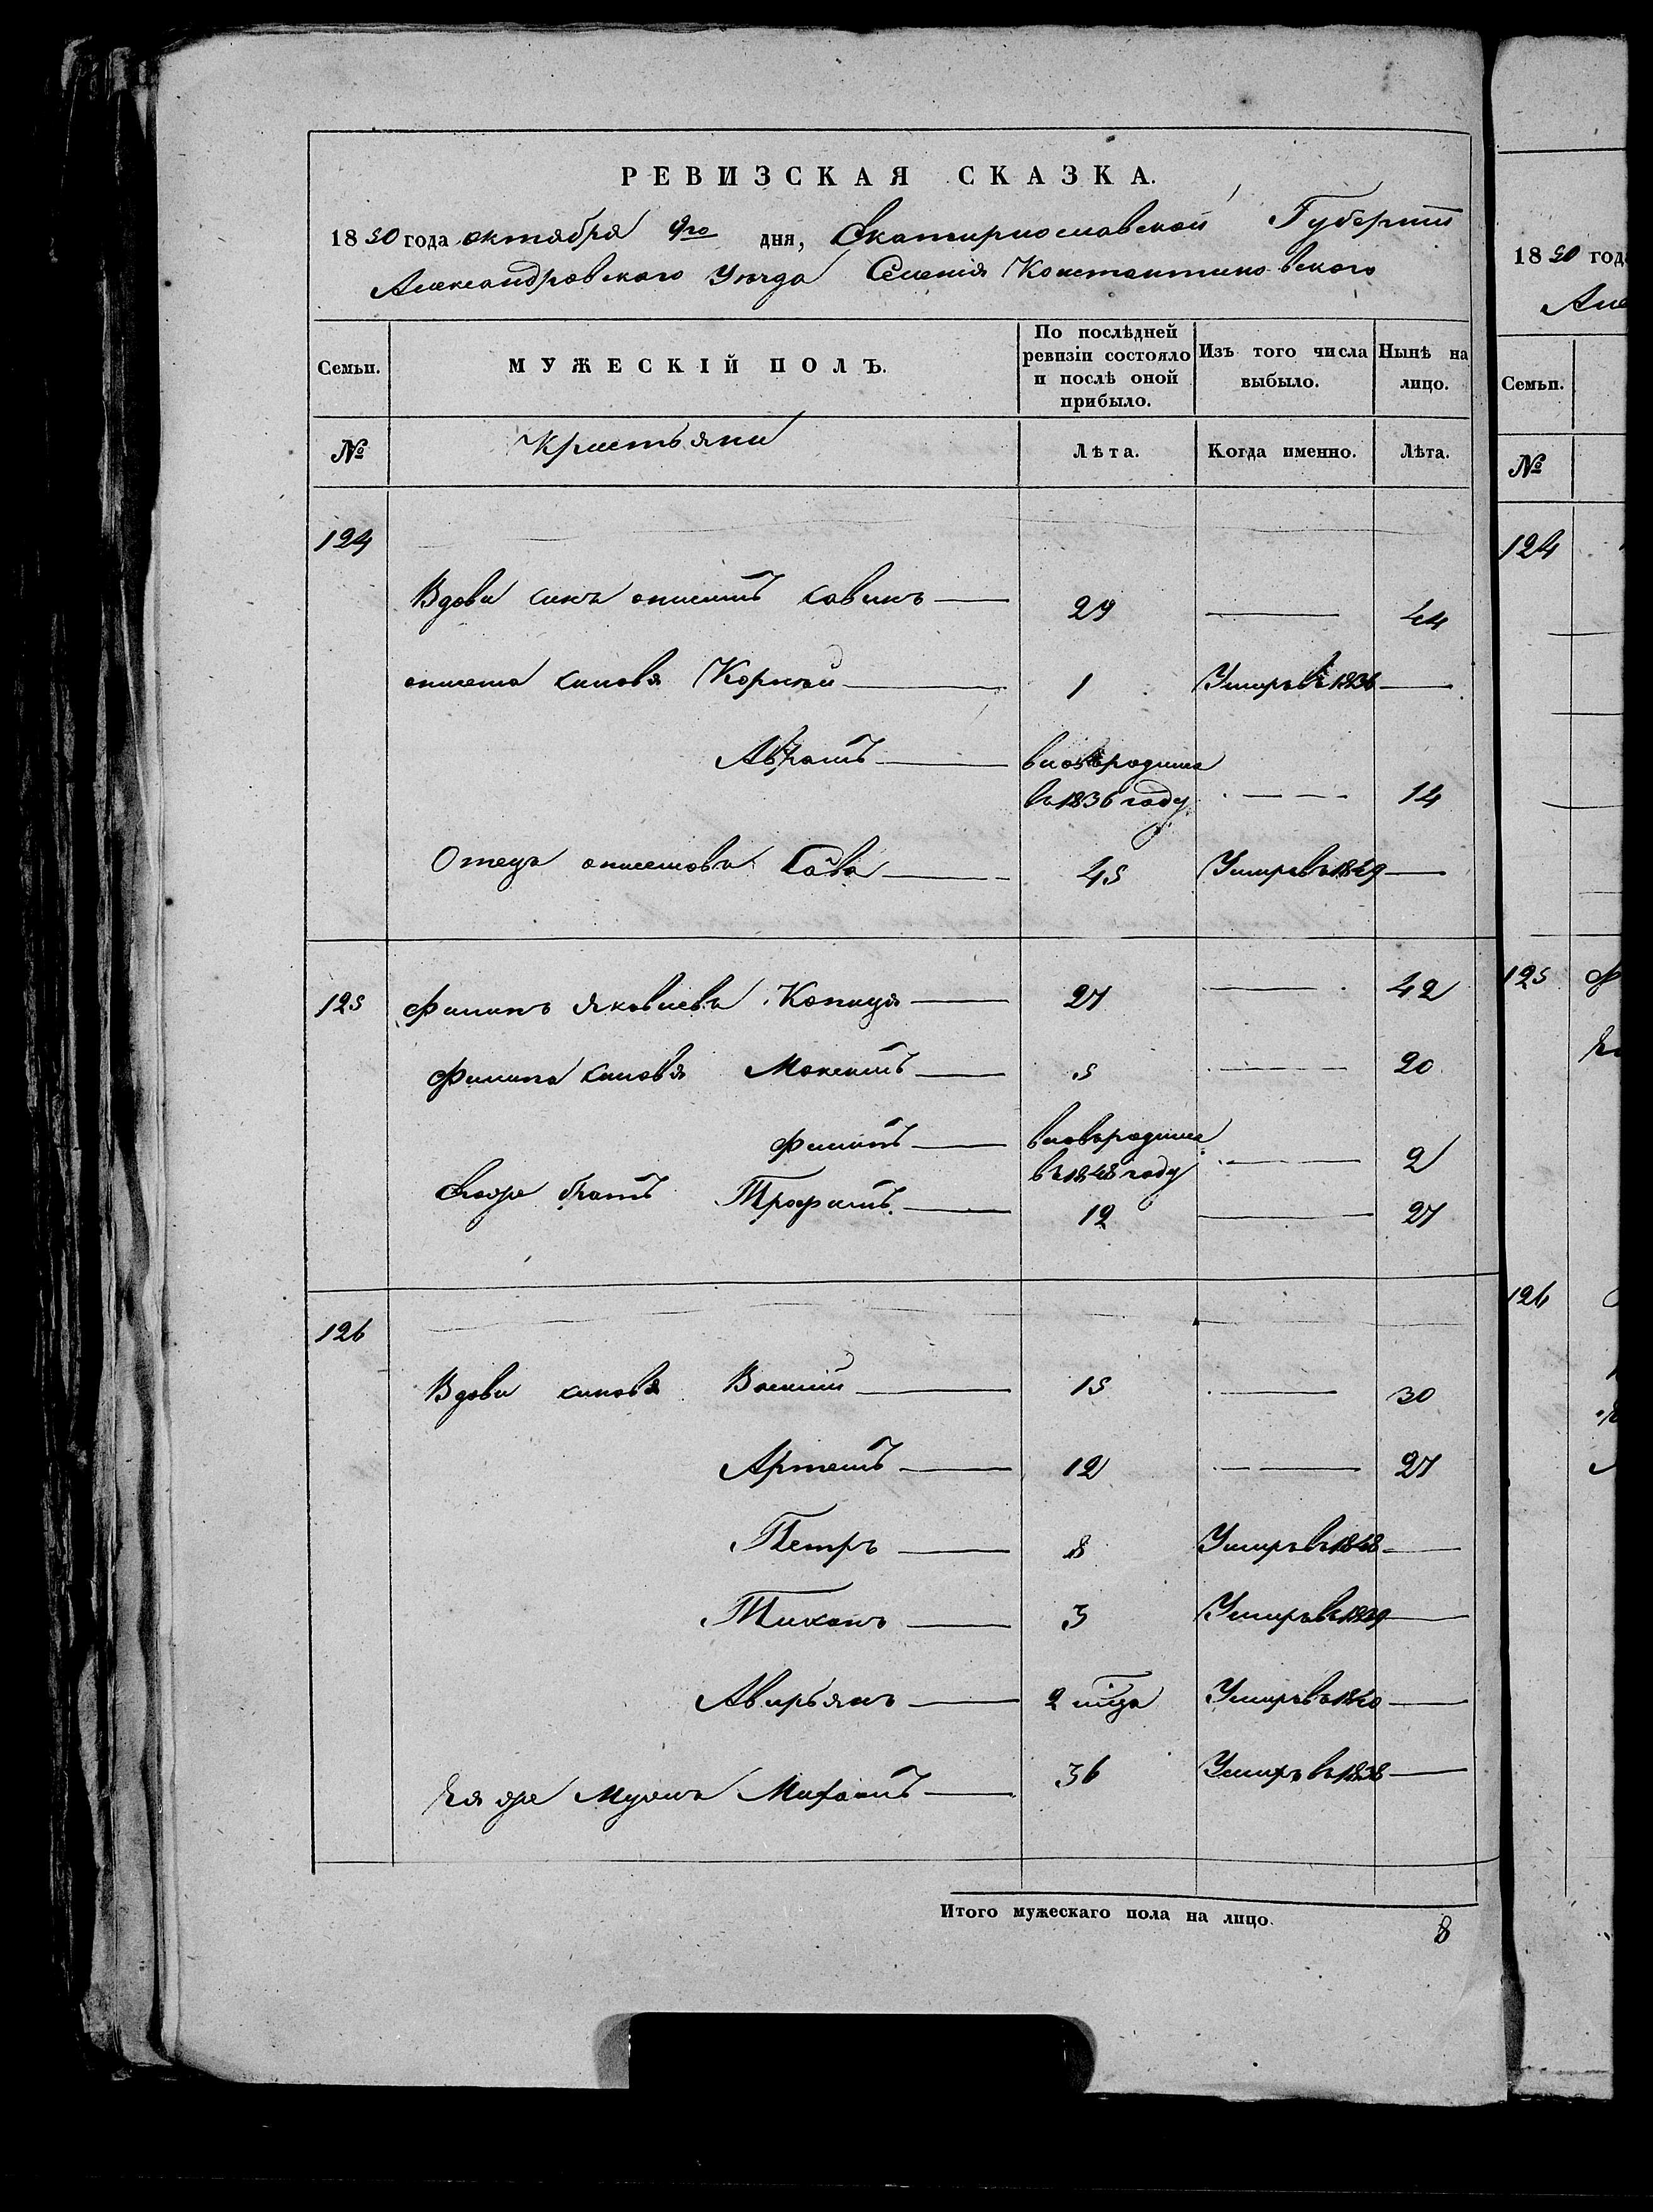 РЕВИЗСКАЯ СКАЗКА.
1850 года октября 9го дня, Екатериославской Губернии
Александровского Уезда Селения Константиновского
Семьи. МУЖЕСКІЙ ПОЛЪ. По послѣдней ревизіи состояло и послѣ оной прибыло. Изъ того числа выбыло. Нынѣ на лицо.
№ Кристьяни Лѣта. Когда именно. Лѣта.
124
Вдови синъ Савинъ 29 44
синовя Корнѣй 1 Умиръ въ 1836
Авраамъ вновь родился
въ 1836 году 14
Отецъ Сава 45 Умиръ въ 1849
125 Филипъ Яковлевъ Копиця 27 42
Филипа синовя Максимъ 5 20
Филипъ вновь родился
въ 1848 году 2
Ево же братъ Трофимъ 12 27
126
Вдови синовя Василий 15 30
Артемъ 12 27
Петръ 8 Умиръ въ 1848
Тихонъ 3 Умиръ въ 1839
Авирьянъ 2 мца Умиръ въ 1840
Ея же Мужъ 36 Умиръ въ 1838
Итого мужескаго пола на лицо. 8
1850 год
Але
Семьи.
№
124
125 Ф
126